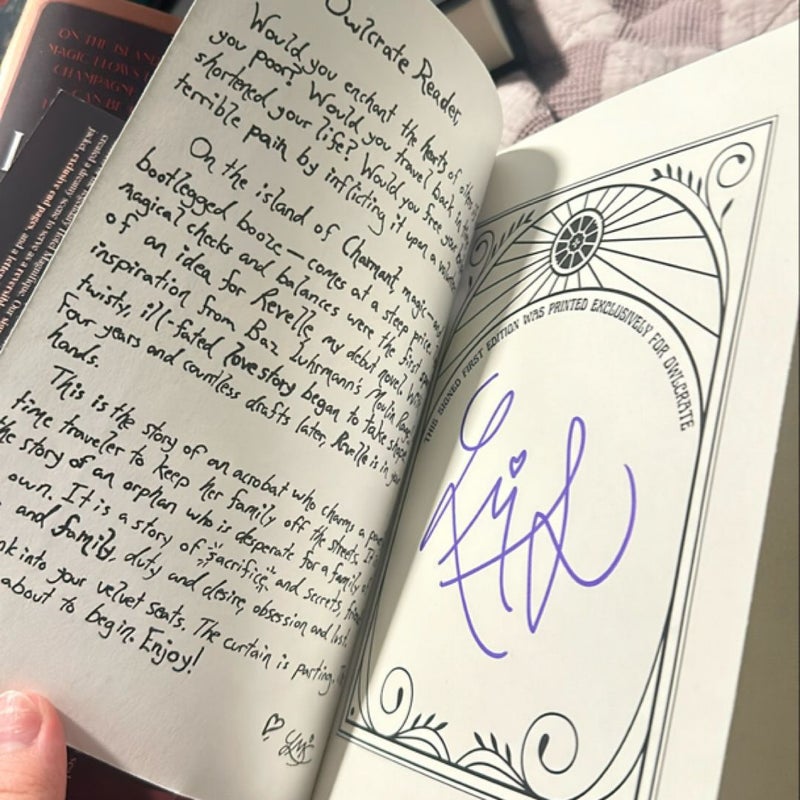 Owlcrate Reader,
Would you enchant the hearts of
you poor? Would you travel back
shortened your life? Would you free your
terrible pain by inflicting it upon a
On the island of Charmant, magic—
bootlegged booze—comes at a steep price.
magical checks and balances were the first
of an idea for Revelle, my debut novel. With
inspiration from Baz Luhrmann's Moulin
twisty, ill-fated love story began to take shape
Four years and countless drafts later, Revelle is in your
hands.
This is the story of an acrobat who charms a
time traveler to keep her family off the streets. It
the story of an orphan who is desperate for a family of
own. It is a story of sacrifice and secrets,
and family, duty and desire, obsession and lust.
into your velvet seats. The curtain is parting.
about to begin. Enjoy!
THIS SIGNED FIRST EDITION WAS PRINTED EXCLUSIVELY FOR OWLCRATE
ON THE ISLAND
MAGIC FLOWS
CHAMPAGNE
CAN BE